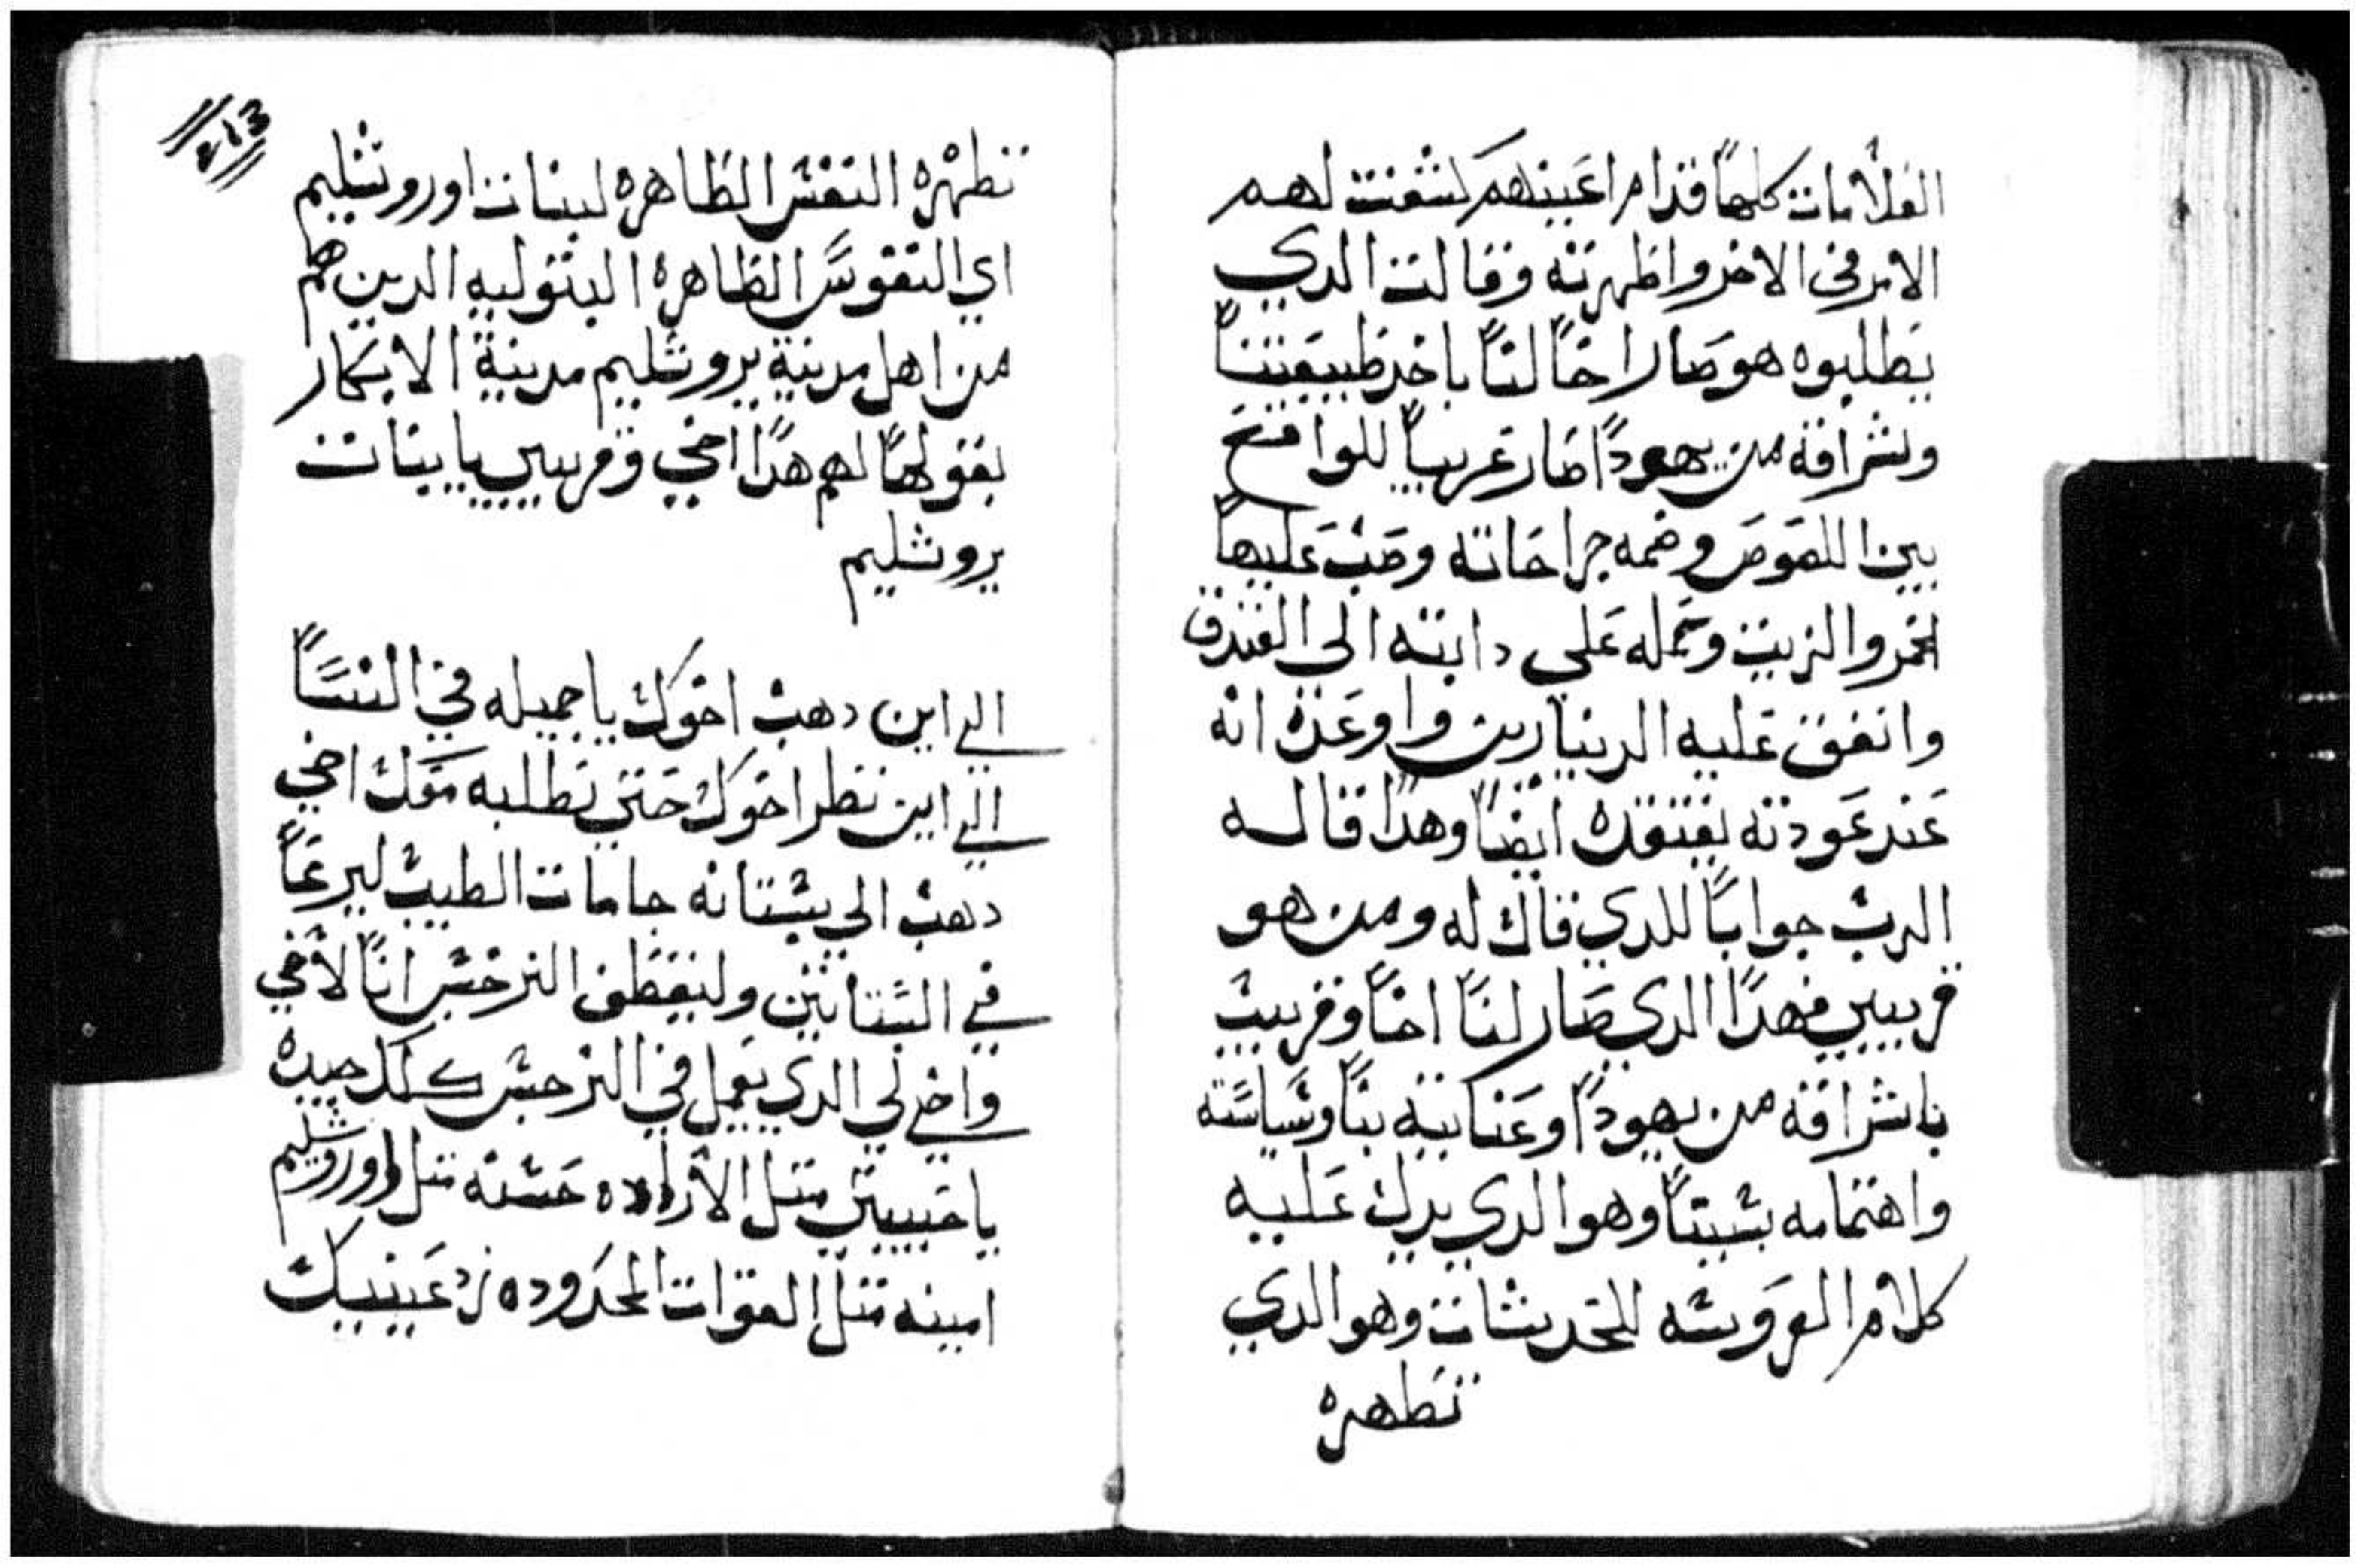 العلامات كلها قدام اعينهم كشفت لهم
الامر في الاخر واظهرته وقالت الدي
يطلبوه هو صار اخا لنا باخد طبيعتنا
وشراقه من يهودا صار غريبا للواقع
بين اللصوص وضمه جراحاته وصب عليها
الخمر والزيت وحمله علي دابته الي الفندق
وانفق عليه الدينارين واوعده انه
عند عودته يفتقده ايضا وهدا قاله
الرب جوابا للدي قال له ومن هو
قريبي فهدا الدي صار لنا اخا وقريب
باشراقه من يهودا وعنايته بنا وسياسته
واهتمامه بشبيتنا وهو الدي يدل عليه
كلام العروسه للحديثات وهو الدي
تطهره
213
تطهره النفس الطاهره لبنات اوروشليم
اي النفوس الطاهره البتوليه الدين هم
من اهل مدينة يروشليم مدينة الابكار
بقولها لهم هدا اخي وقريبي يا بنات
يروشليم
الي اين دهب اخوك يا جميله في النسا
الي اين نظر اخوك حتي نطلبه معك اخي
دهب الي بستانه جامات الطيب ليرعا
في البساتين وليقطف النرجس انا لاخي
واخي لي الدي يعمل في النرجس كلك جيده
يا حبيبتي متل الاراده حسنه متل اوروشليم
امينه متل القوات المحدوده زد عينيك